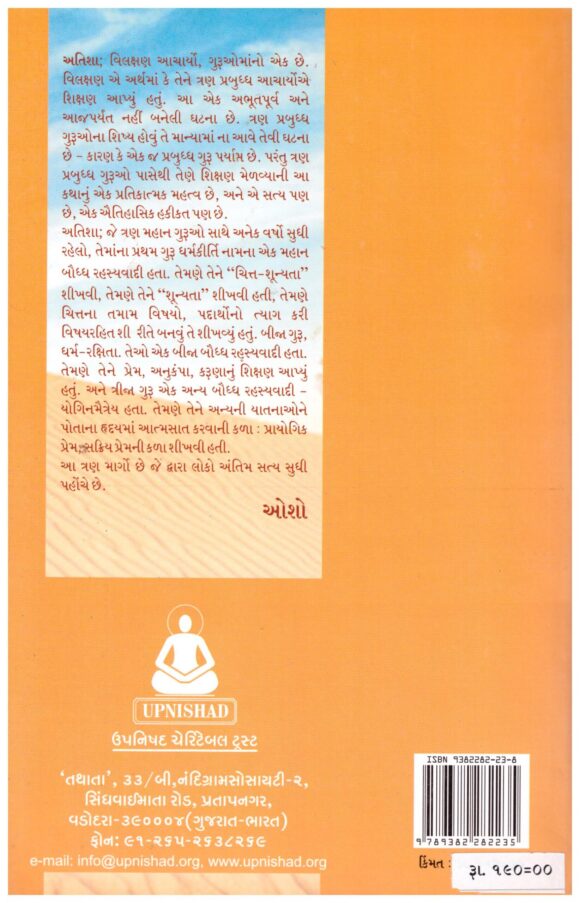 અતિશા; વિલક્ષણ આચાર્યો, ગુરૂઓમાંનો એક છે.
વિલક્ષણ એ અર્થમાં કે તેને ત્રણ પ્રબુધ્ધ આચાર્યોએ
શિક્ષણ આપ્યું હતું. આ એક અભૂતપૂર્વ અને
આજપર્યંત નહીં બનેલી ઘટના છે. ત્રણ પ્રબુધ્ધ
ગુરૂઓના શિષ્ય હોવું તે માન્યામાં ના આવે તેવી ઘટના
છે – કારણ કે એક જ પ્રબુધ્ધ ગુરૂ પર્યાપ્ત છે. પરંતુ ત્રણ
પ્રબુધ્ધ ગુરૂઓ પાસેથી તેણે શિક્ષણ મેળવ્યાની આ
કથાનું એક પ્રતિકાત્મક મહત્વ છે, અને એ સત્ય પણ
છે, એક ઐતિહાસિક હકીકત પણ છે.
અતિશા; જે ત્રણ મહાન ગુરૂઓ સાથે અનેક વર્ષો સુધી
રહેલો, તેમાંના પ્રથમ ગુરૂ ધર્મકીર્તિ નામના એક મહાન
બૌધ્ધ રહસ્યવાદી હતા. તેમણે તેને “ચિત્ત-શૂન્યતા”
શીખવી, તેમણે તેને “શૂન્યતા” શીખવી હતી, તેમણે
ચિત્તના તમામ વિષયો, પદાર્થોનો ત્યાગ કરી
વિષયરહિત શી રીતે બનવું તે શીખવ્યું હતું. બીજા ગુરૂ,
ધર્મ-રક્ષિતા. તેઓ એક બીજા બૌધ્ધ રહસ્યવાદી હતા.
તેમણે તેને પ્રેમ, અનુકંપા, કરૂણાનું શિક્ષણ આપ્યું
હતું. અને ત્રીજા ગુરૂ એક અન્ય બૌધ્ધ રહસ્યવાદી –
યોગિનમૈત્રેય હતા. તેમણે તેને અન્યની યાતનાઓને
પોતાના હૃદયમાં આત્મસાત કરવાની કળા : પ્રાયોગિક
પ્રેમ, સક્રિય પ્રેમની કળા શીખવી હતી.
આ ત્રણ માર્ગો છે જે દ્વારા લોકો અંતિમ સત્ય સુધી
પહોંચે છે.
ઓશો
UPNISHAD
ઉપનિષદ ચેરિટેબલ ટ્રસ્ટ
‘તથાતા’, ૩૩/બી, નંદિગ્રામસોસાયટી-૨,
સિંધવાઈમાતા રોડ, પ્રતાપનગર,
વડોદરા-૩૯૦૦૦૪(ગુજરાત-ભારત)
ફોન: ૯૧-૨૬૫-૨૬૩૮૨૬૯
e-mail: info@upnishad.org, www.upnishad.org
ISBN 9382282-23-8
9 789382 282235
કિંમત : રૂા. ૧૯૦=૦૦